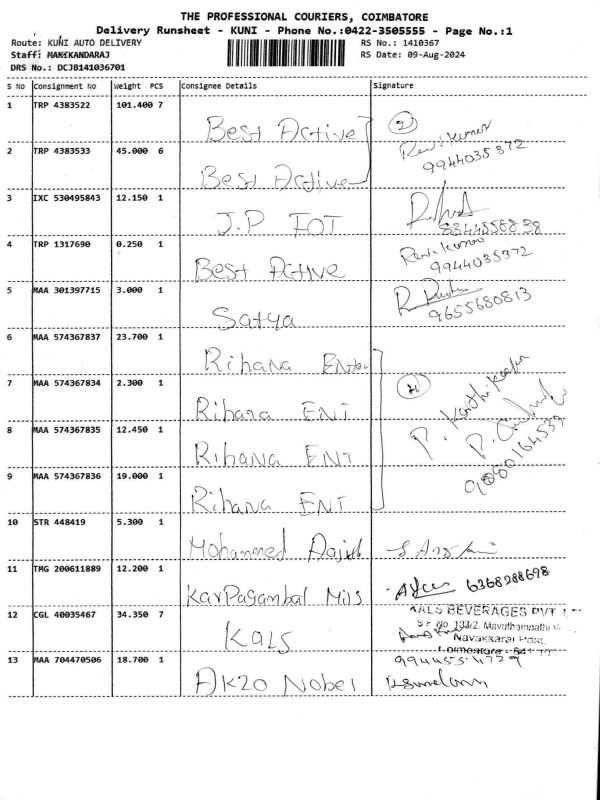 THE PROFESSIONAL COURIERS, COIMBATORE
Delivery Runsheet - KUNI - Phone No.:0422-3505555 - Page No.:1
Route: KUNI AUTO DELIVERY
RS No.: 1410367
Staff: MANIKANDARAJ
RS Date: 09-Aug-2024
DRS No.: DCJB141036701
S No Consignment No Weight PCS Consignee Details Signature
1 TRP 4383522 101.400 7
Best Active
2
Ravi kumar
9944035372
2 TRP 4383533 45.000 6
Best Active
3 IXC 530495843 12.150 1
J.P IOT
8344558838
4 TRP 1317690 0.250 1
Best Active
Ravi kumar
9944035372
5 MAA 301397715 3.000 1
Satya
R
9655680813
6 MAA 574367837 23.700 1
Rihana Enter
7 MAA 574367834 2.300 1
Rihana ENT
P. Karthikeyan
8 MAA 574367835 12.450 1
Rihana ENT
9080164533
9 MAA 574367836 19.000 1
Rihana ENT
10 STR 448419 5.300 1
Mohammed
11 TMG 200611889 12.200 1
Karpagambal Mils
6368288698
12 CGL 40035467 34.350 7
KALS
KALS BEVERAGES PVT
S.F No 103/2, Mavuthampathi
Navakkarai Post,
Coimbatore - 641
13 MAA 704470506 18.700 1
Akzo Nobel
9944554729